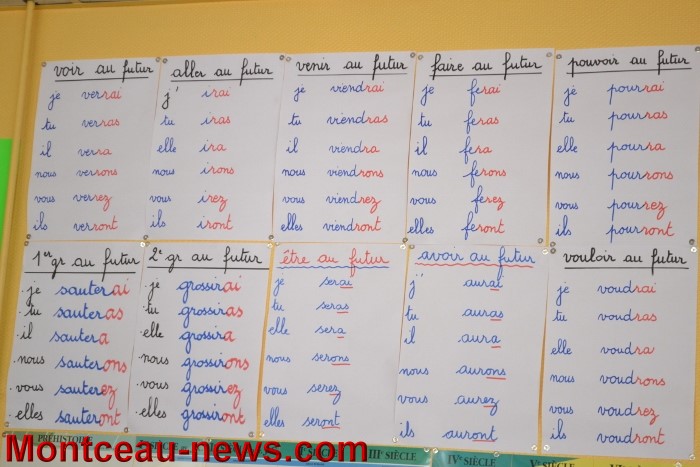 voir au futur
je verrai
tu verras
il verra
nous verrons
vous verrez
ils verront
aller au futur
j' irai
tu iras
elle ira
nous irons
vous irez
ils iront
venir au futur
je viendrai
tu viendras
il viendra
nous viendrons
vous viendrez
elles viendront
faire au futur
je ferai
tu feras
il fera
nous ferons
vous ferez
elles feront
pouvoir au futur
je pourrai
tu pourras
elle pourra
nous pourrons
vous pourrez
ils pourront
1er gr au futur
. je sauterai
. tu sauteras
. il sautera
. nous sauterons
. vous sauterez
. elles sauteront
2e gr au futur
. je grossirai
. tu grossiras
. elle grossira
. nous grossirons
. vous grossirez
. elles grossiront
être au futur
je serai
tu seras
elle sera
nous serons
vous serez
elles seront
avoir au futur
j' aurai
tu auras
il aura
nous aurons
vous aurez
ils auront
vouloir au futur
je voudrai
tu voudras
elle voudra
nous voudrons
vous voudrez
ils voudront
PRÉHISTOIRE
SIÈCLE IIIe SIÈCLE IVe SIÈCLE Ve SIÈCLE
Montceau-news.com